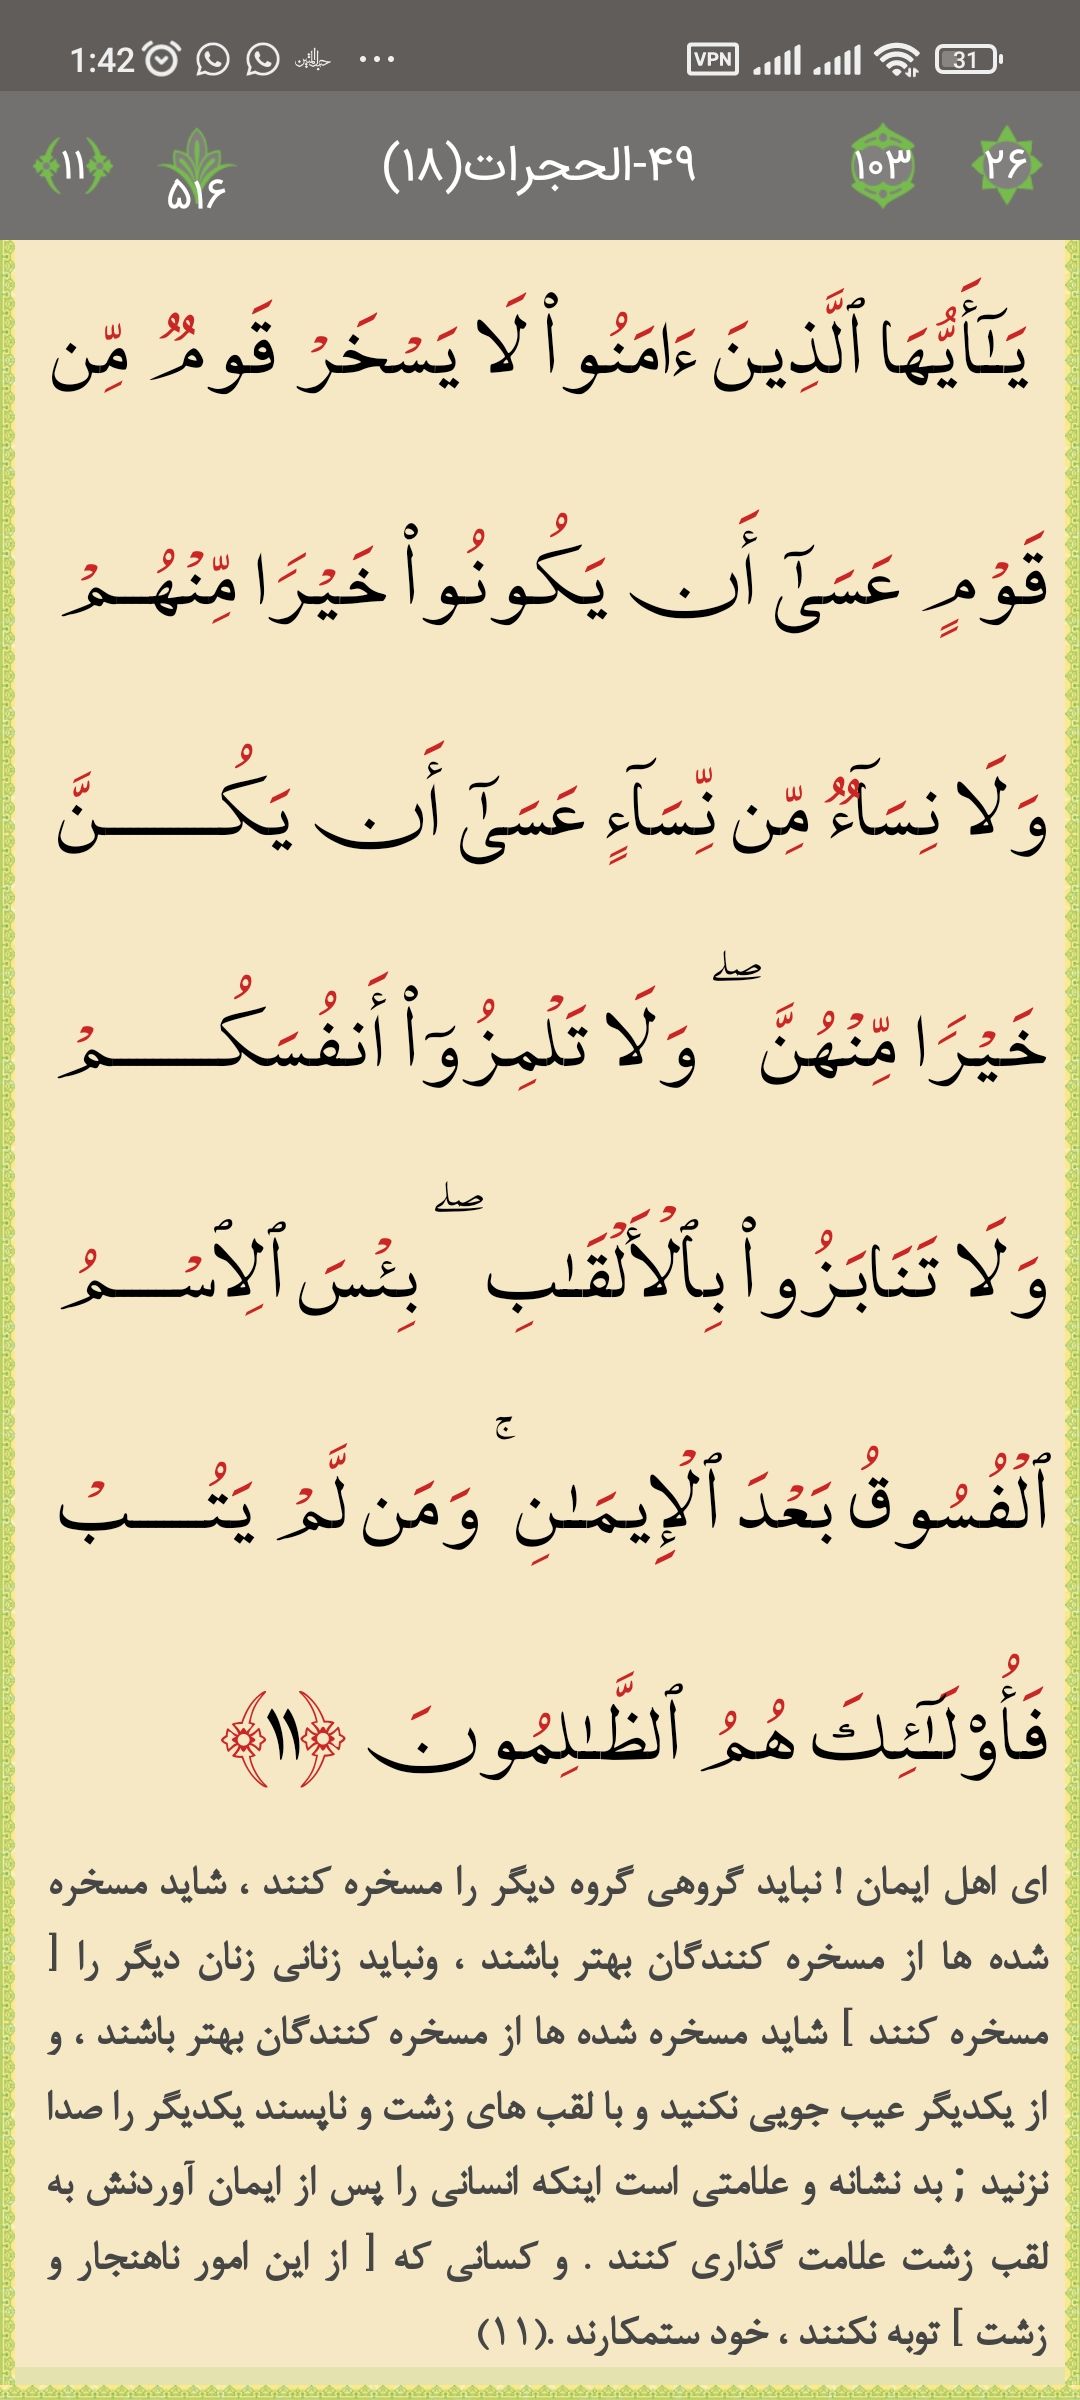 1:42 ... VPN 31
۲۶ ۱۰۳ ۴۹-الحجرات(۱۸) ۵۱۶ ۱۱
يَـٰٓأَيُّهَا ٱلَّذِينَ ءَامَنُوا۟ لَا يَسْخَرْ قَومٌ مِّن
قَوْمٍ عَسَىٰٓ أَن يَكُونُوا۟ خَيْرًا مِّنْهُمْ
وَلَا نِسَآءٌ مِّن نِّسَآءٍ عَسَىٰٓ أَن يَكُنَّ
خَيْرًا مِّنْهُنَّ ۖ وَلَا تَلْمِزُوٓا۟ أَنفُسَكُمْ
وَلَا تَنَابَزُوا۟ بِٱلْأَلْقَـٰبِ ۖ بِئْسَ ٱلِٱسْمُ
ٱلْفُسُوقُ بَعْدَ ٱلْإِيمَـٰنِ ۚ وَمَن لَّمْ يَتُبْ
فَأُو۟لَـٰٓئِكَ هُمُ ٱلظَّـٰلِمُونَ ﴿١١﴾
ای اهل ایمان ! نباید گروهی گروه دیگر را مسخره کنند ، شاید مسخره
شده ها از مسخره کنندگان بهتر باشند ، ونباید زنانی زنان دیگر را [
مسخره کنند ] شاید مسخره شده ها از مسخره کنندگان بهتر باشند ، و
از یکدیگر عیب جویی نکنید و با لقب های زشت و ناپسند یکدیگر را صدا
نزنید ; بد نشانه و علامتی است اینکه انسانی را پس از ایمان آوردنش به
لقب زشت علامت گذاری کنند . و کسانی که [ از این امور ناهنجار و
زشت ] توبه نکنند ، خود ستمکارند .(۱۱)